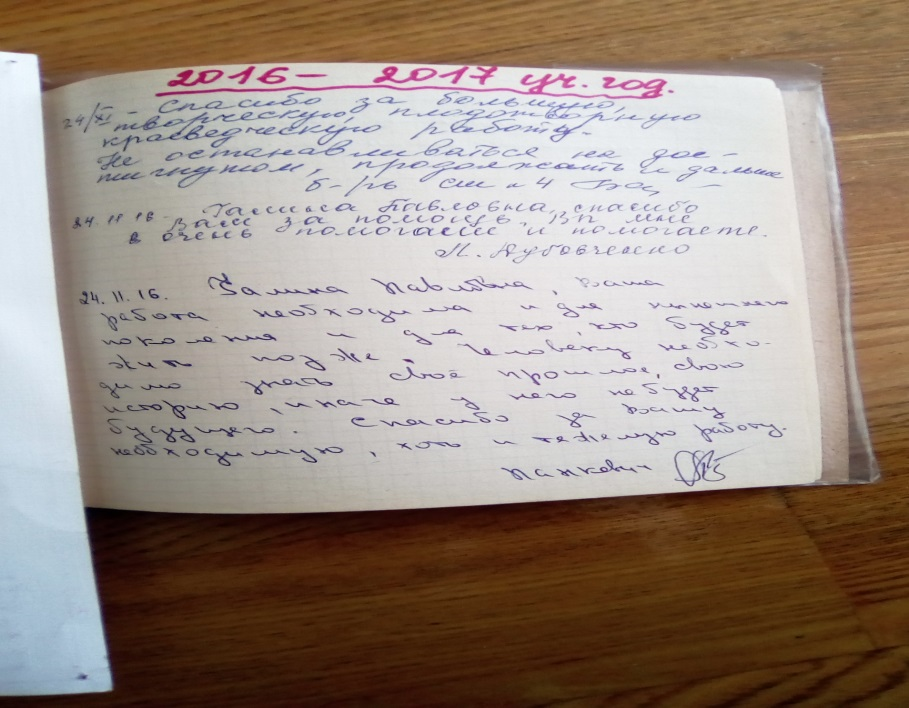 2016 – 2017 уч. год.
24/XI – Спасибо за большую,
творческую, плодотворную
краеведческую работу.
Не останавливаться на дос-
тигнутом, продолжать и дальше
24.11.16 Галина Павловна, спасибо
Вам за помощь. Вы мне
очень помогаете и помогаете.
Н. Дубовченко
24.11.16. Галина Павловна, Ваша
работа необходима и для нынешнего
поколения и для тех, кто будет
жить позже. Человеку необхо-
димо знать своё прошлое, свою
историю, иначе у него не будет
будущего. Спасибо за Вашу
необходимую, хоть и тяжелую работу.
Панкевич